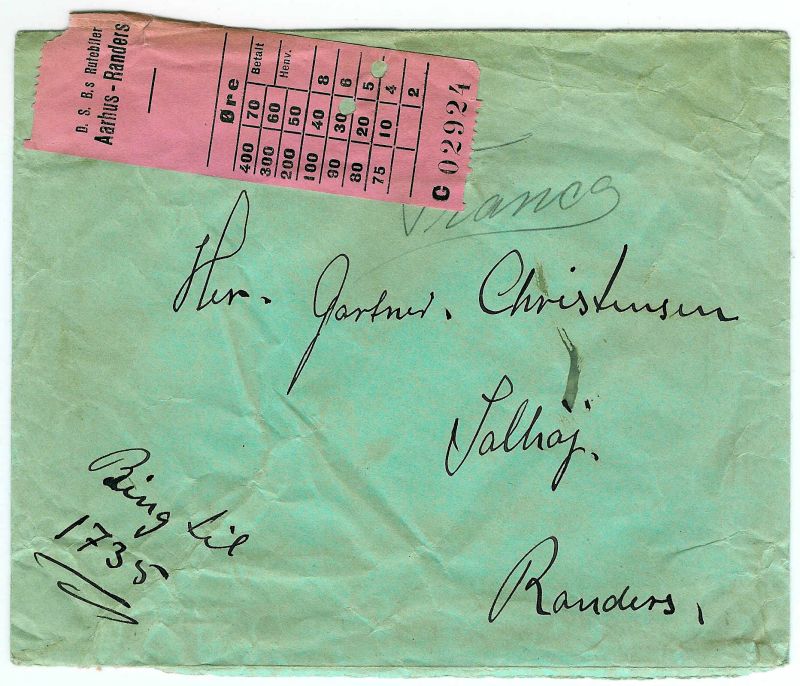 D. S. B.s Rutebiler
Aarhus - Randers
Øre
400 70 Betalt
300 60 Henv.
200 50
100 40 8
90 30 6
80 20 5
75 10 4
2
C 02924
Franco
Herr. Gartner. Christensen
Solhøj.
Randers,
Ring til
1735